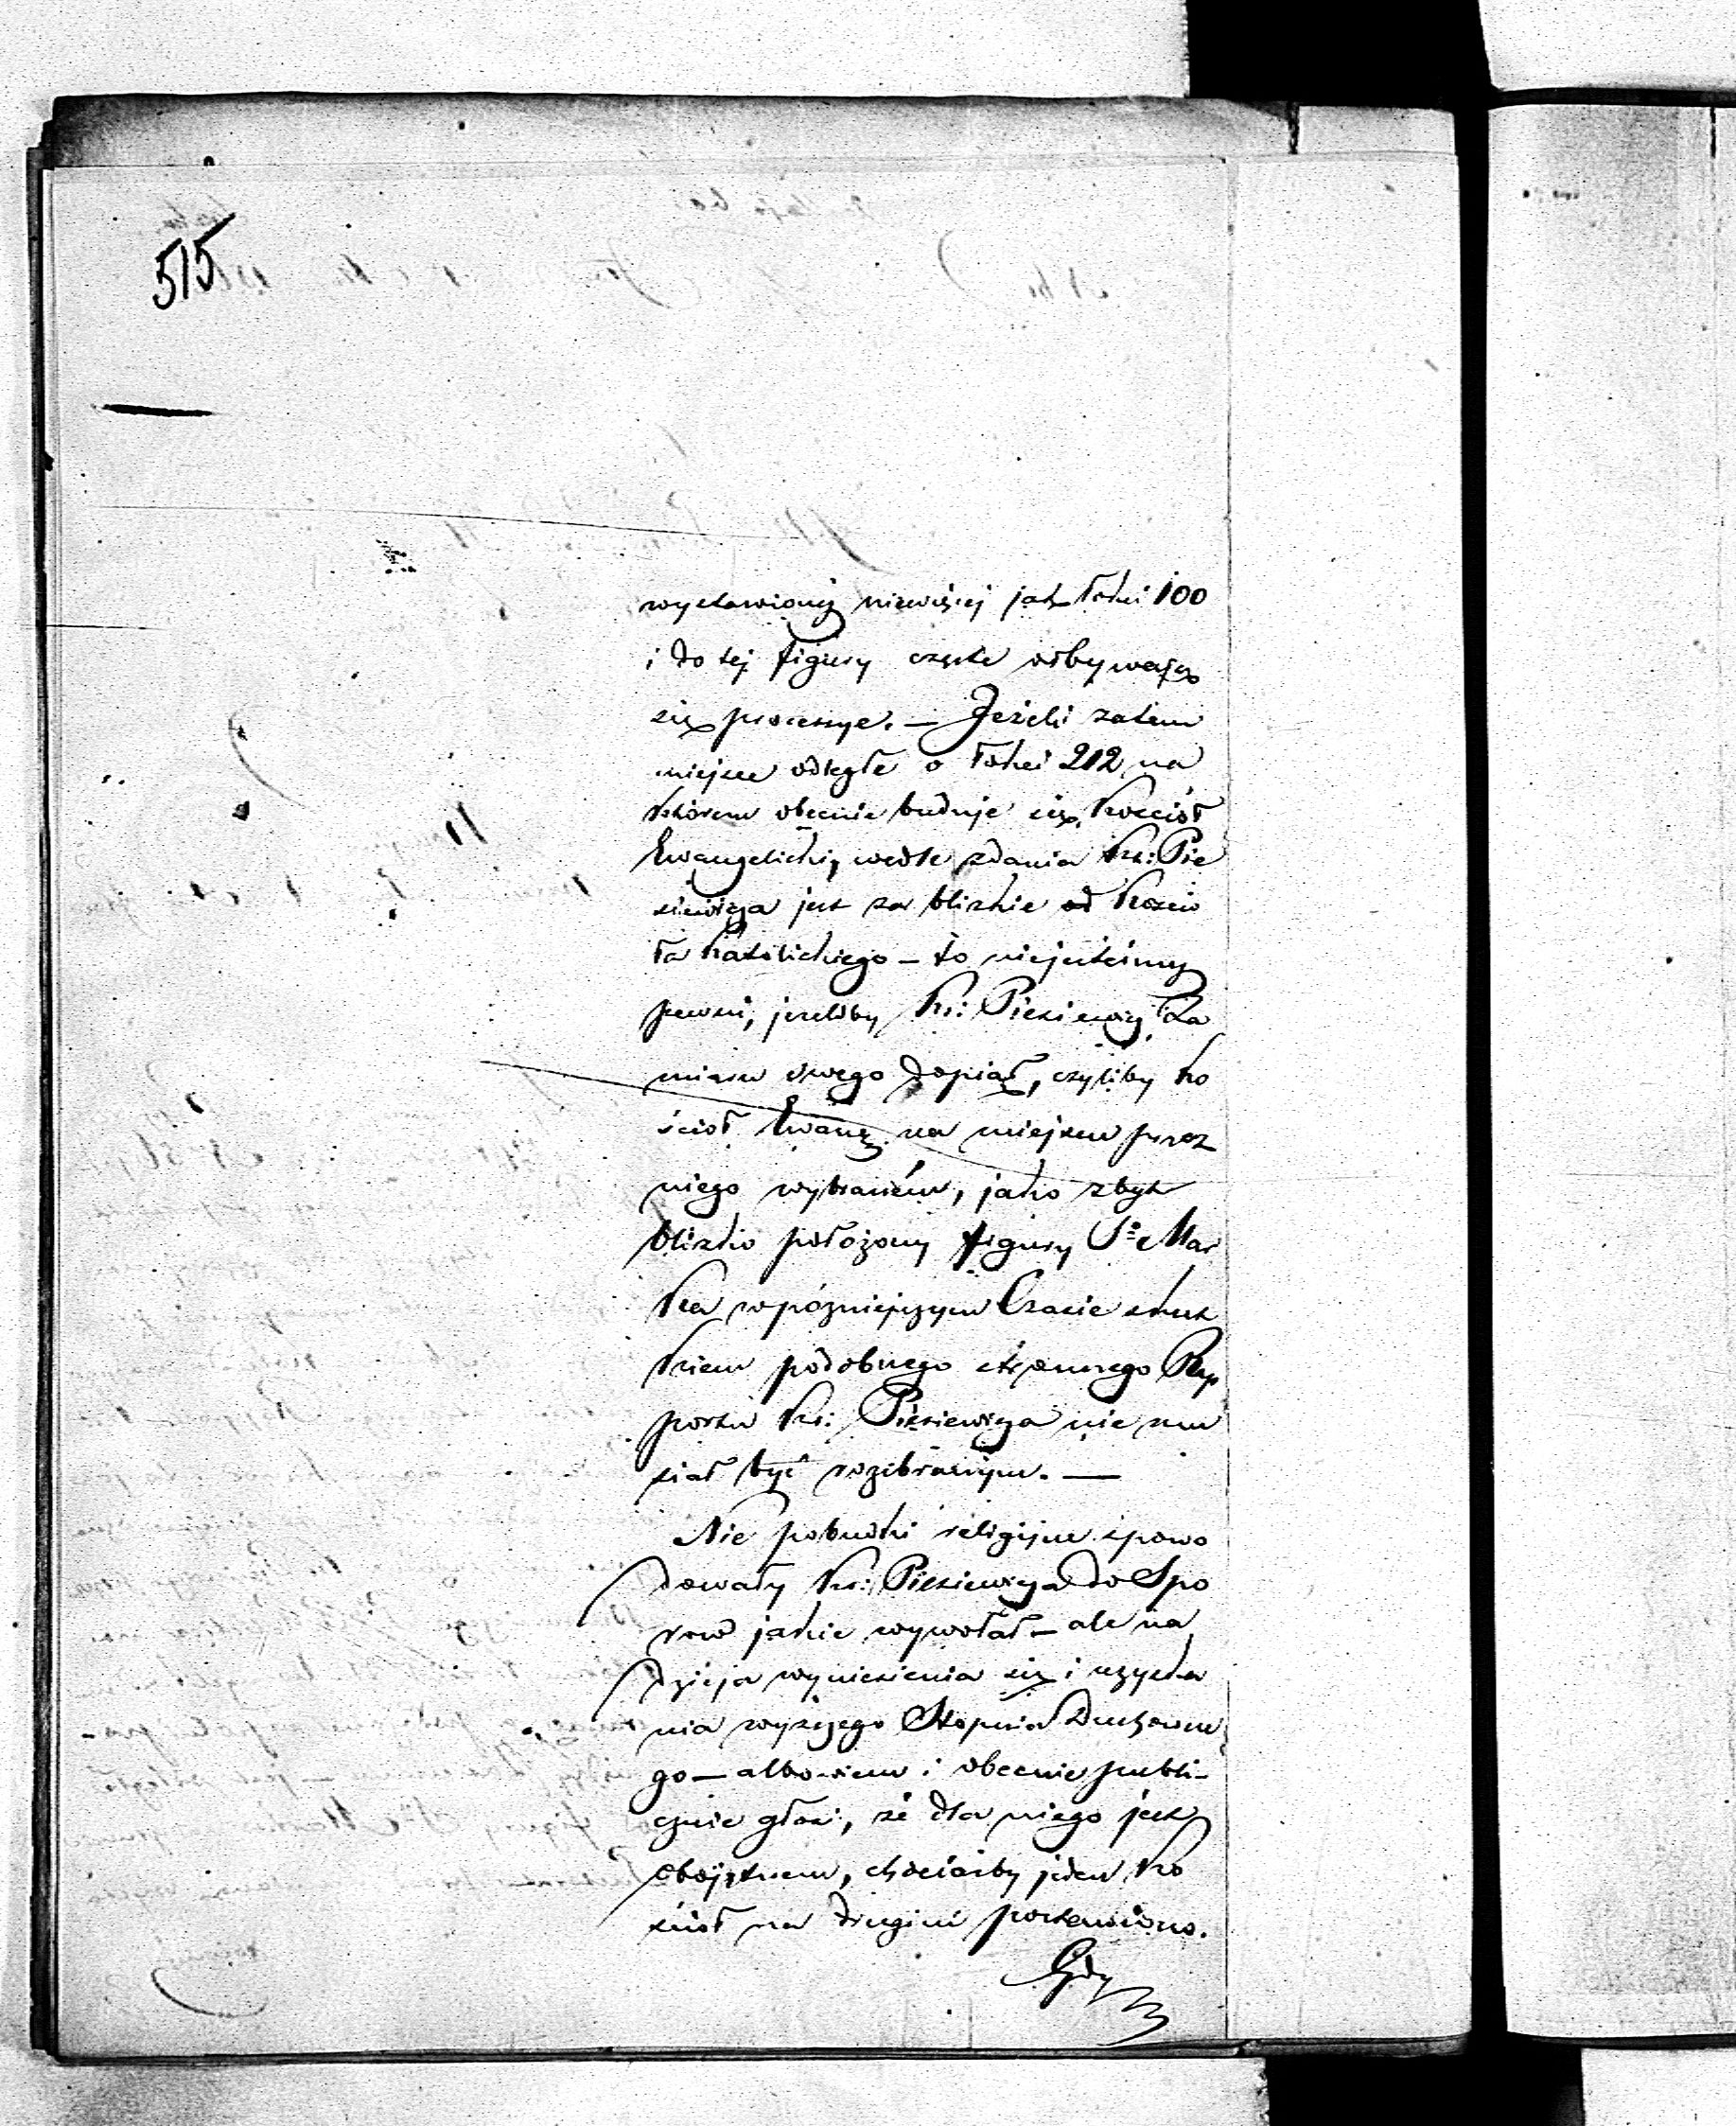 515
wystawionéj niewięcej jak łokci 100
i do tej figury częste odbywają
się processye. — Jeżeli zatem
miejsce odległe o łokci 212 na
którem obecnie buduje się Kosciół
Ewangelicki, wedle zdania Ks: Pie
siewicza jest za blizkie od Koscio
ła Katolickiego — to niejesteśmy
pewni, jeżeliby Ks: Piesiewicz Za
miaru swego dopiął, czyliby ko
ściół Ewang. na miejscu przez
niego wybraném, jako zbyt
blizko położony figury S. Mar
ka w późniejszym Czasie skut
kiem podobnego stronnego Rap
portu Ks: Piesiewicza nie mu
siał być rozebranym. —
Nie pobudki religijne spowo
dowały Ks: Piesiewicza do Spo
rów jakie wywołał — ale na
dzieja wyniesienia się i uzyska
nia wyższego Stopnia Duchowne
go — albowiem i obecnie publi-
cznie głosi, że dla niego jest
obojętnem, chociażby jeden Ko
ściół na drugim postawiono.
Gdy